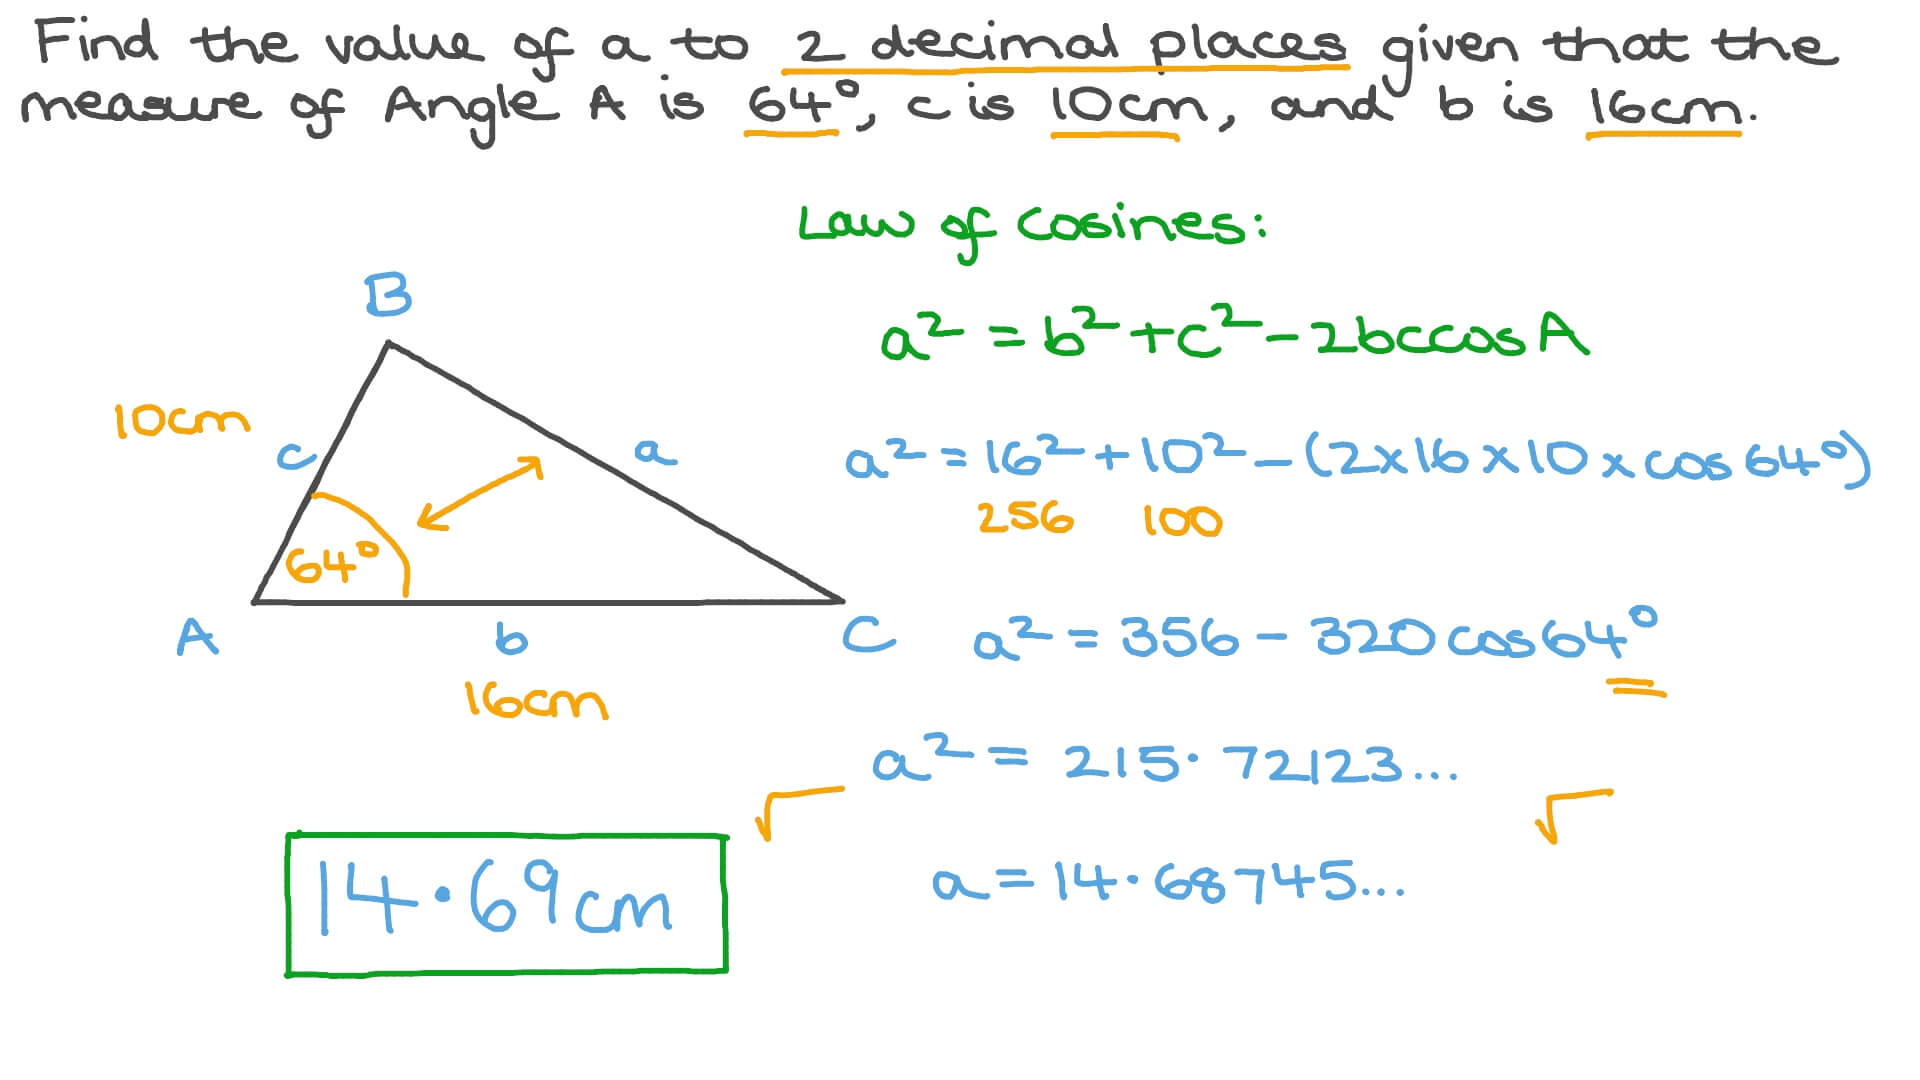 Find the value of a to 2 decimal places given that the
measure of Angle A is 64°, c is 10cm, and b is 16cm.
Law of cosines:
a² = b² + c² - 2bccosA
B
10cm
c
a
64°
A
b
C
16cm
a² = 16² + 10² - (2 × 16 × 10 × cos 64°)
256 100
a² = 356 - 320 cos64°
a² = 215.72123...
√ √
a = 14.68745...
14.69cm